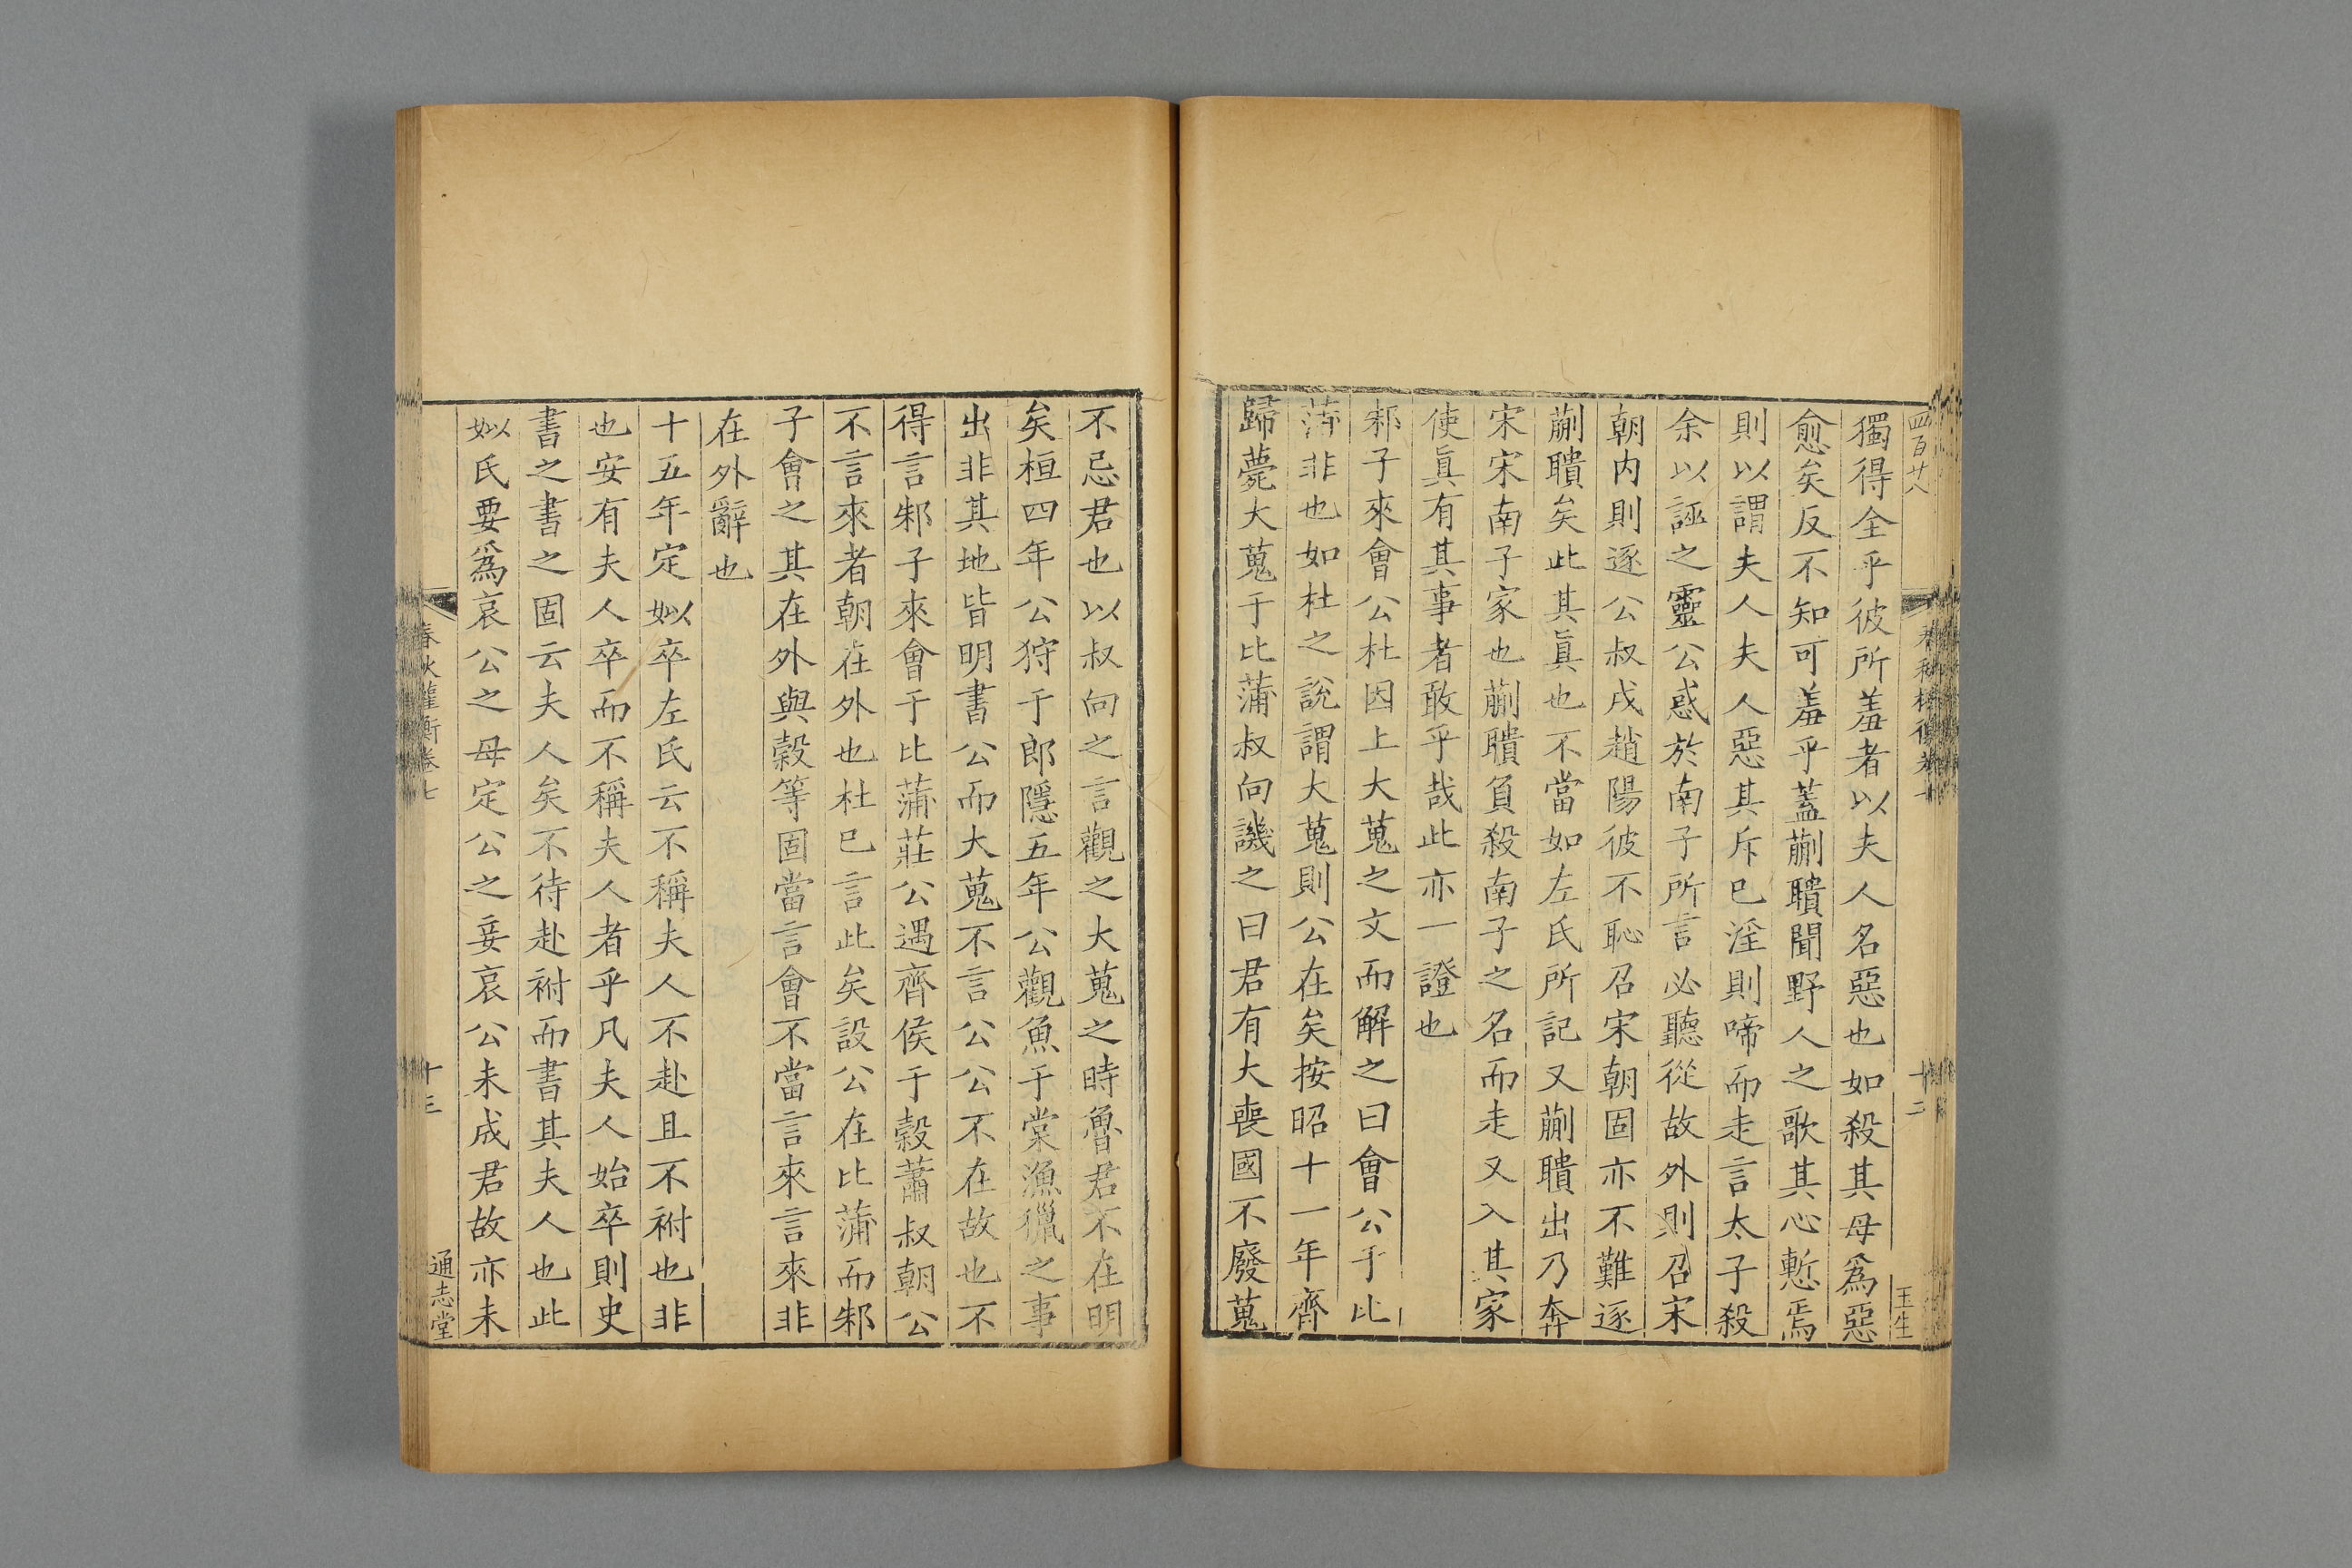 四百廿八
十二
王生
獨得全乎彼所羞者以夫人名惡也如殺其母爲惡
愈矣反不知可羞乎蓋蒯聵聞野人之歌其心慙焉
則以謂夫人夫人惡其斥巳淫則啼而走言太子殺
余以誣之靈公惑於南子所言必聽從故外則召宋
朝内則逐公叔戍趙陽彼不恥召宋朝固亦不難逐
蒯聵矣此其眞也不當如左氏所記又蒯聵出乃奔
宋宋南子家也蒯聵負殺南子之名而走又入其家
使眞有其事者敢乎哉此亦一證也
邾子來會公杜因上大蒐之文而解之曰會公于比
蒲非也如杜之說謂大蒐則公在矣按昭十一年齊
歸薨大蒐于比蒲叔向譏之曰君有大喪國不廢蒐
不忌君也以叔向之言觀之大蒐之時魯君不在明
矣桓四年公狩于郎隱五年公觀魚于棠漁獵之事
出非其地皆明書公而大蒐不言公公不在故也不
得言邾子來會于比蒲莊公遇齊侯于穀蕭叔朝公
不言來者朝在外也杜巳言此矣設公在比蒲而邾
子會之其在外與穀等固當言會不當言來言來非
在外辭也
十五年定姒卒左氏云不稱夫人不赴且不祔也非
也安有夫人卒而不稱夫人者乎凡夫人始卒則史
書之書之固云夫人矣不待赴祔而書其夫人也此
姒氏要爲哀公之母定公之妾哀公未成君故亦未
春秋權衡卷七
十三
通志堂